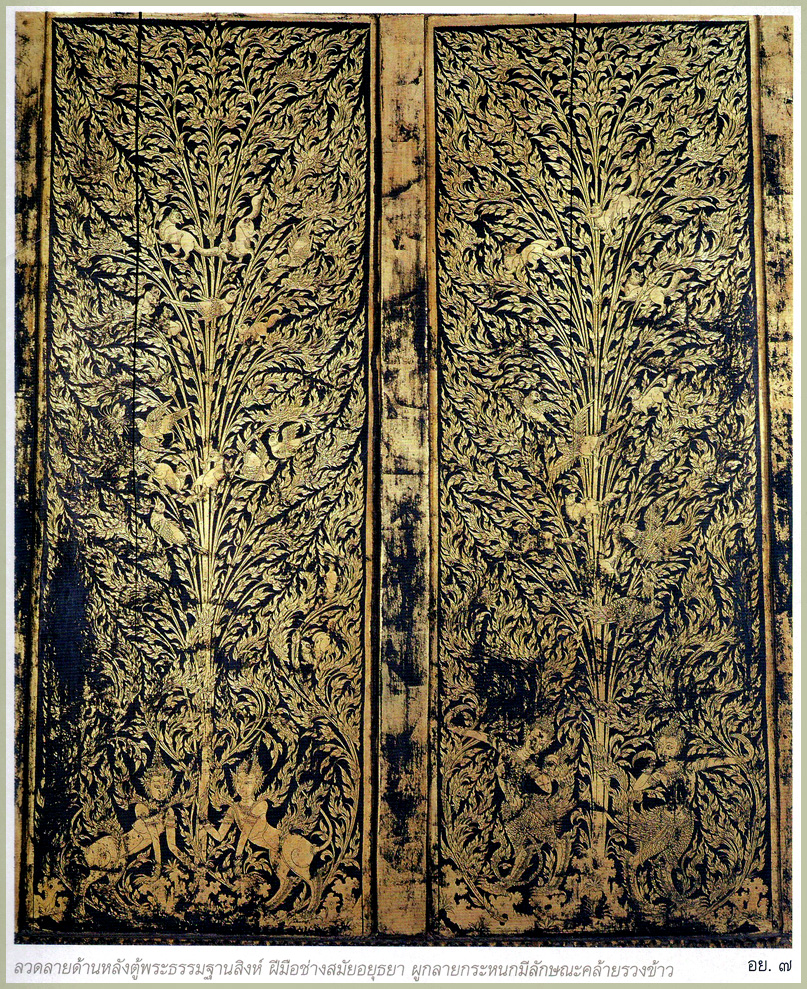 ลวดลายด้านหลังตู้พระธรรมฐานสิงห์ ฝีมือช่างสมัยอยุธยา ผูกลายกระหนกมีลักษณะคล้ายรวงข้าว
อย. ๗